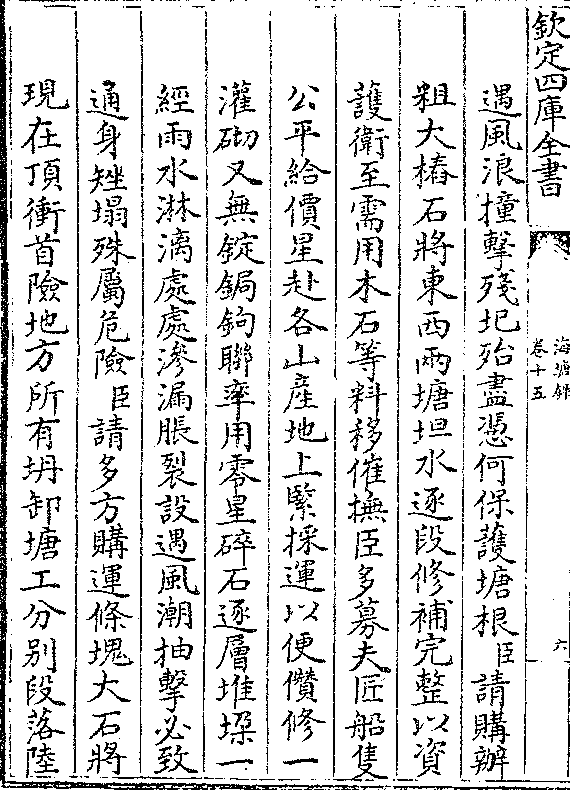 欽定四庫全書
海塘錄
卷十五
六
遇風浪撞擊殘圮殆盡憑何保護塘根臣請購辦
粗大樁石將東西兩塘坦水逐段修補完整以資
護衛至需用木石等料移催撫臣多募夫匠船隻
公平給價星赴各山産地上緊採運以便儹修一
灌砌又無錠鋦鉤聯率用零星碎石逐層堆垜一
經雨水淋漓處處滲漏脹裂設遇風潮抽擊必致
通身矬塌殊屬危險臣請多方購運條塊大石將
現在頂衝首險地方所有坍卸塘工分别段落陸